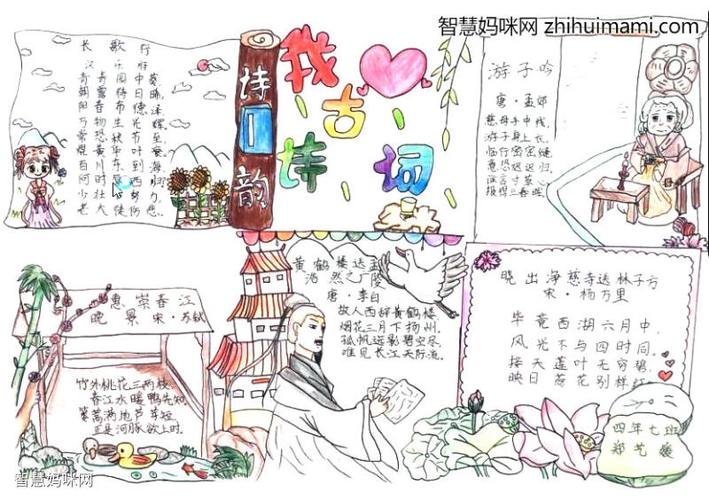 智慧妈咪网 zhihuimami.com
长歌行
汉乐府
青青园中葵
朝露待日晞,
阳春布德泽
万物生光辉
常恐秋节至,
焜黄华叶衰
百川东到海
何时西归
少壮努力
老大徒伤悲
诗韵
我
古
诗
词
游子吟
唐·孟郊
慈母手中线,
游子身上衣,
临行密密缝
意恐迟迟归
谁言寸草心
报得三春晖
惠崇春江
晚景 宋·苏轼
竹外桃花三两枝
春江水暖鸭先知,
蒌蒿满地芦芽短
正是河豚欲上时,
黄鹤楼送孟
浩然之广陵
唐·李白
故人西辞黄鹤楼
烟花三月下扬州,
孤帆远影碧空尽
唯见长江天际流,
晓出净慈寺送林子方
宋·杨万里
毕竟西湖六月中,
风光不与四时同,
接天莲叶无穷碧,
映日荷花别样红
四年七班
郑艺媛
智慧妈咪网